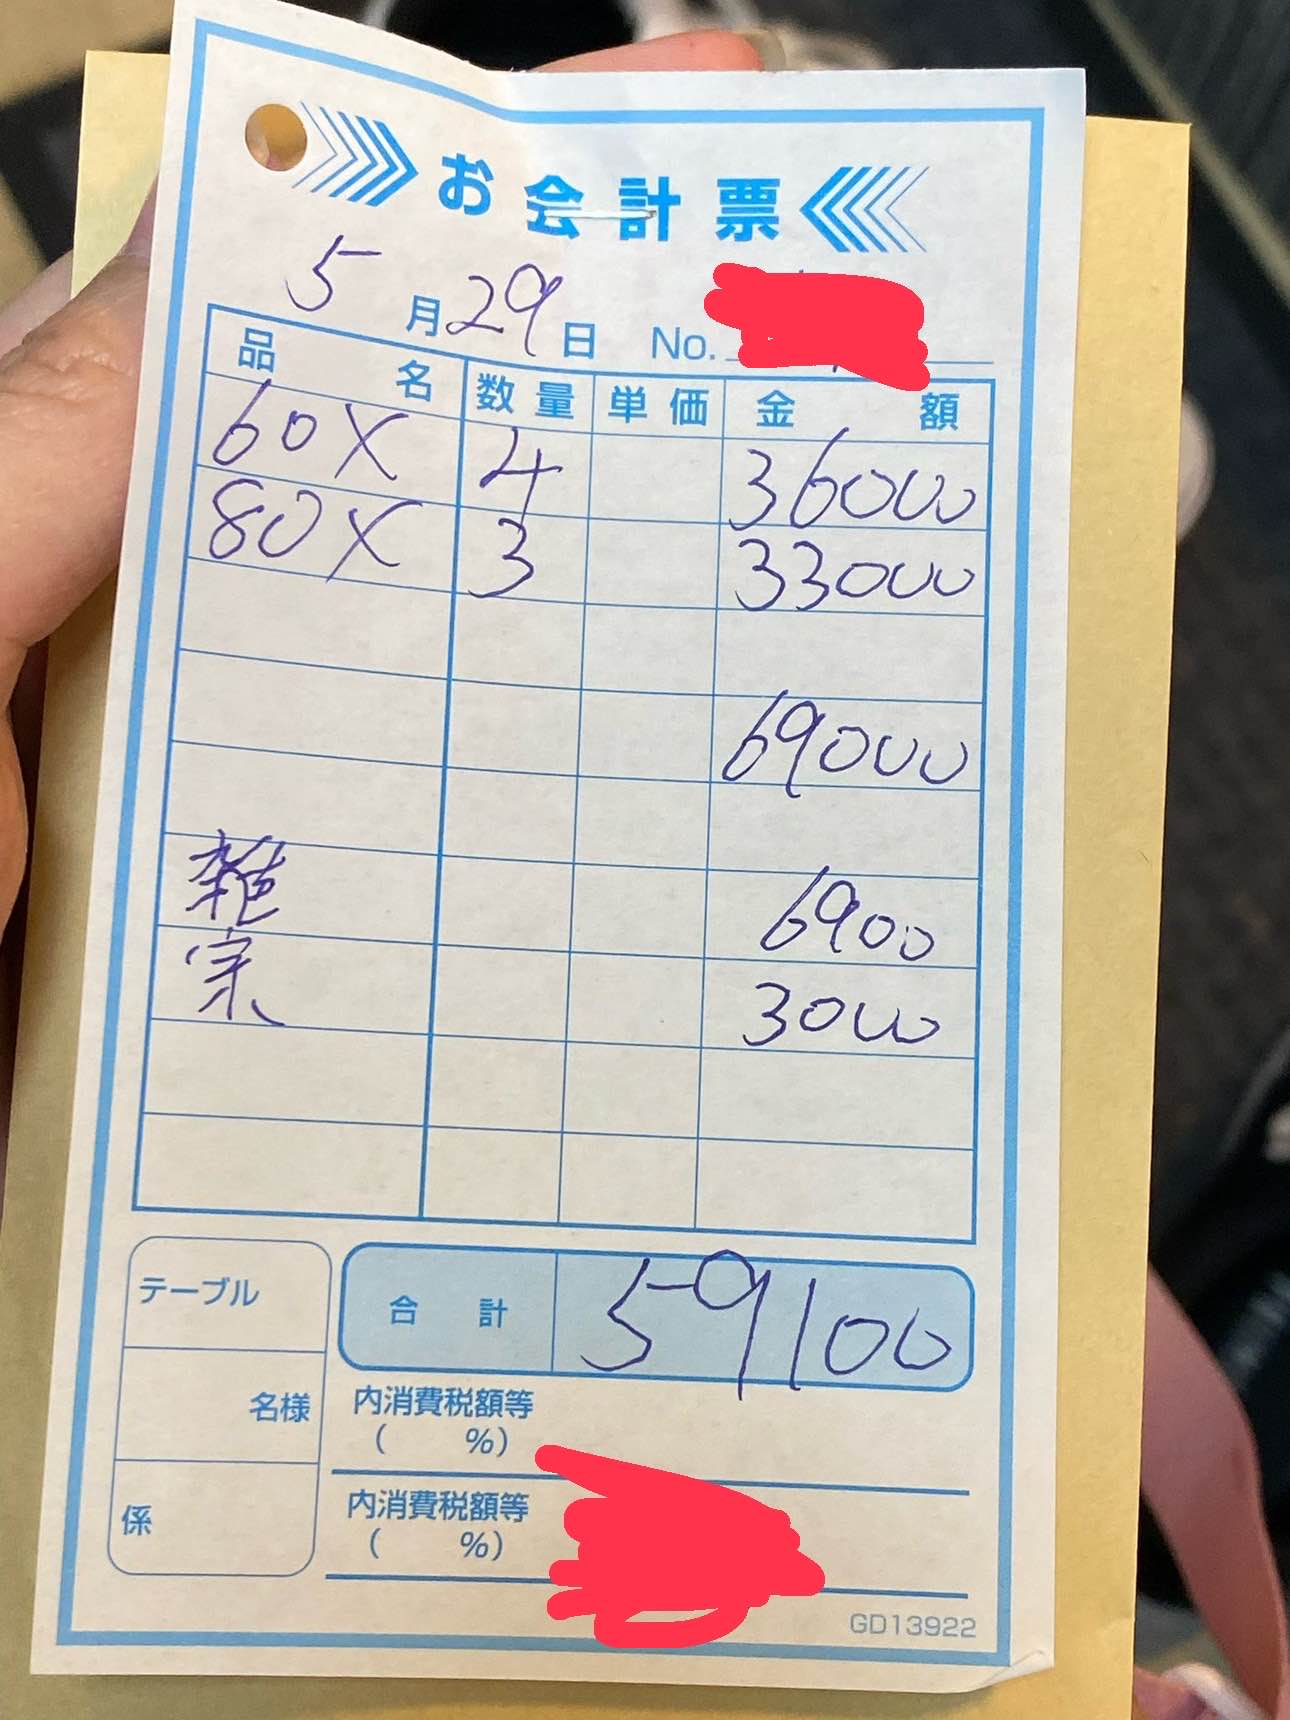 お会計票
5月29日 No.
品名 数量 単価 金額
60X 4 36000
80X 3 33000
69000
雑 6900
宋 3000
テーブル
合計 59100
名様
内消費税額等
( %)
係
内消費税額等
( %)
GD13922